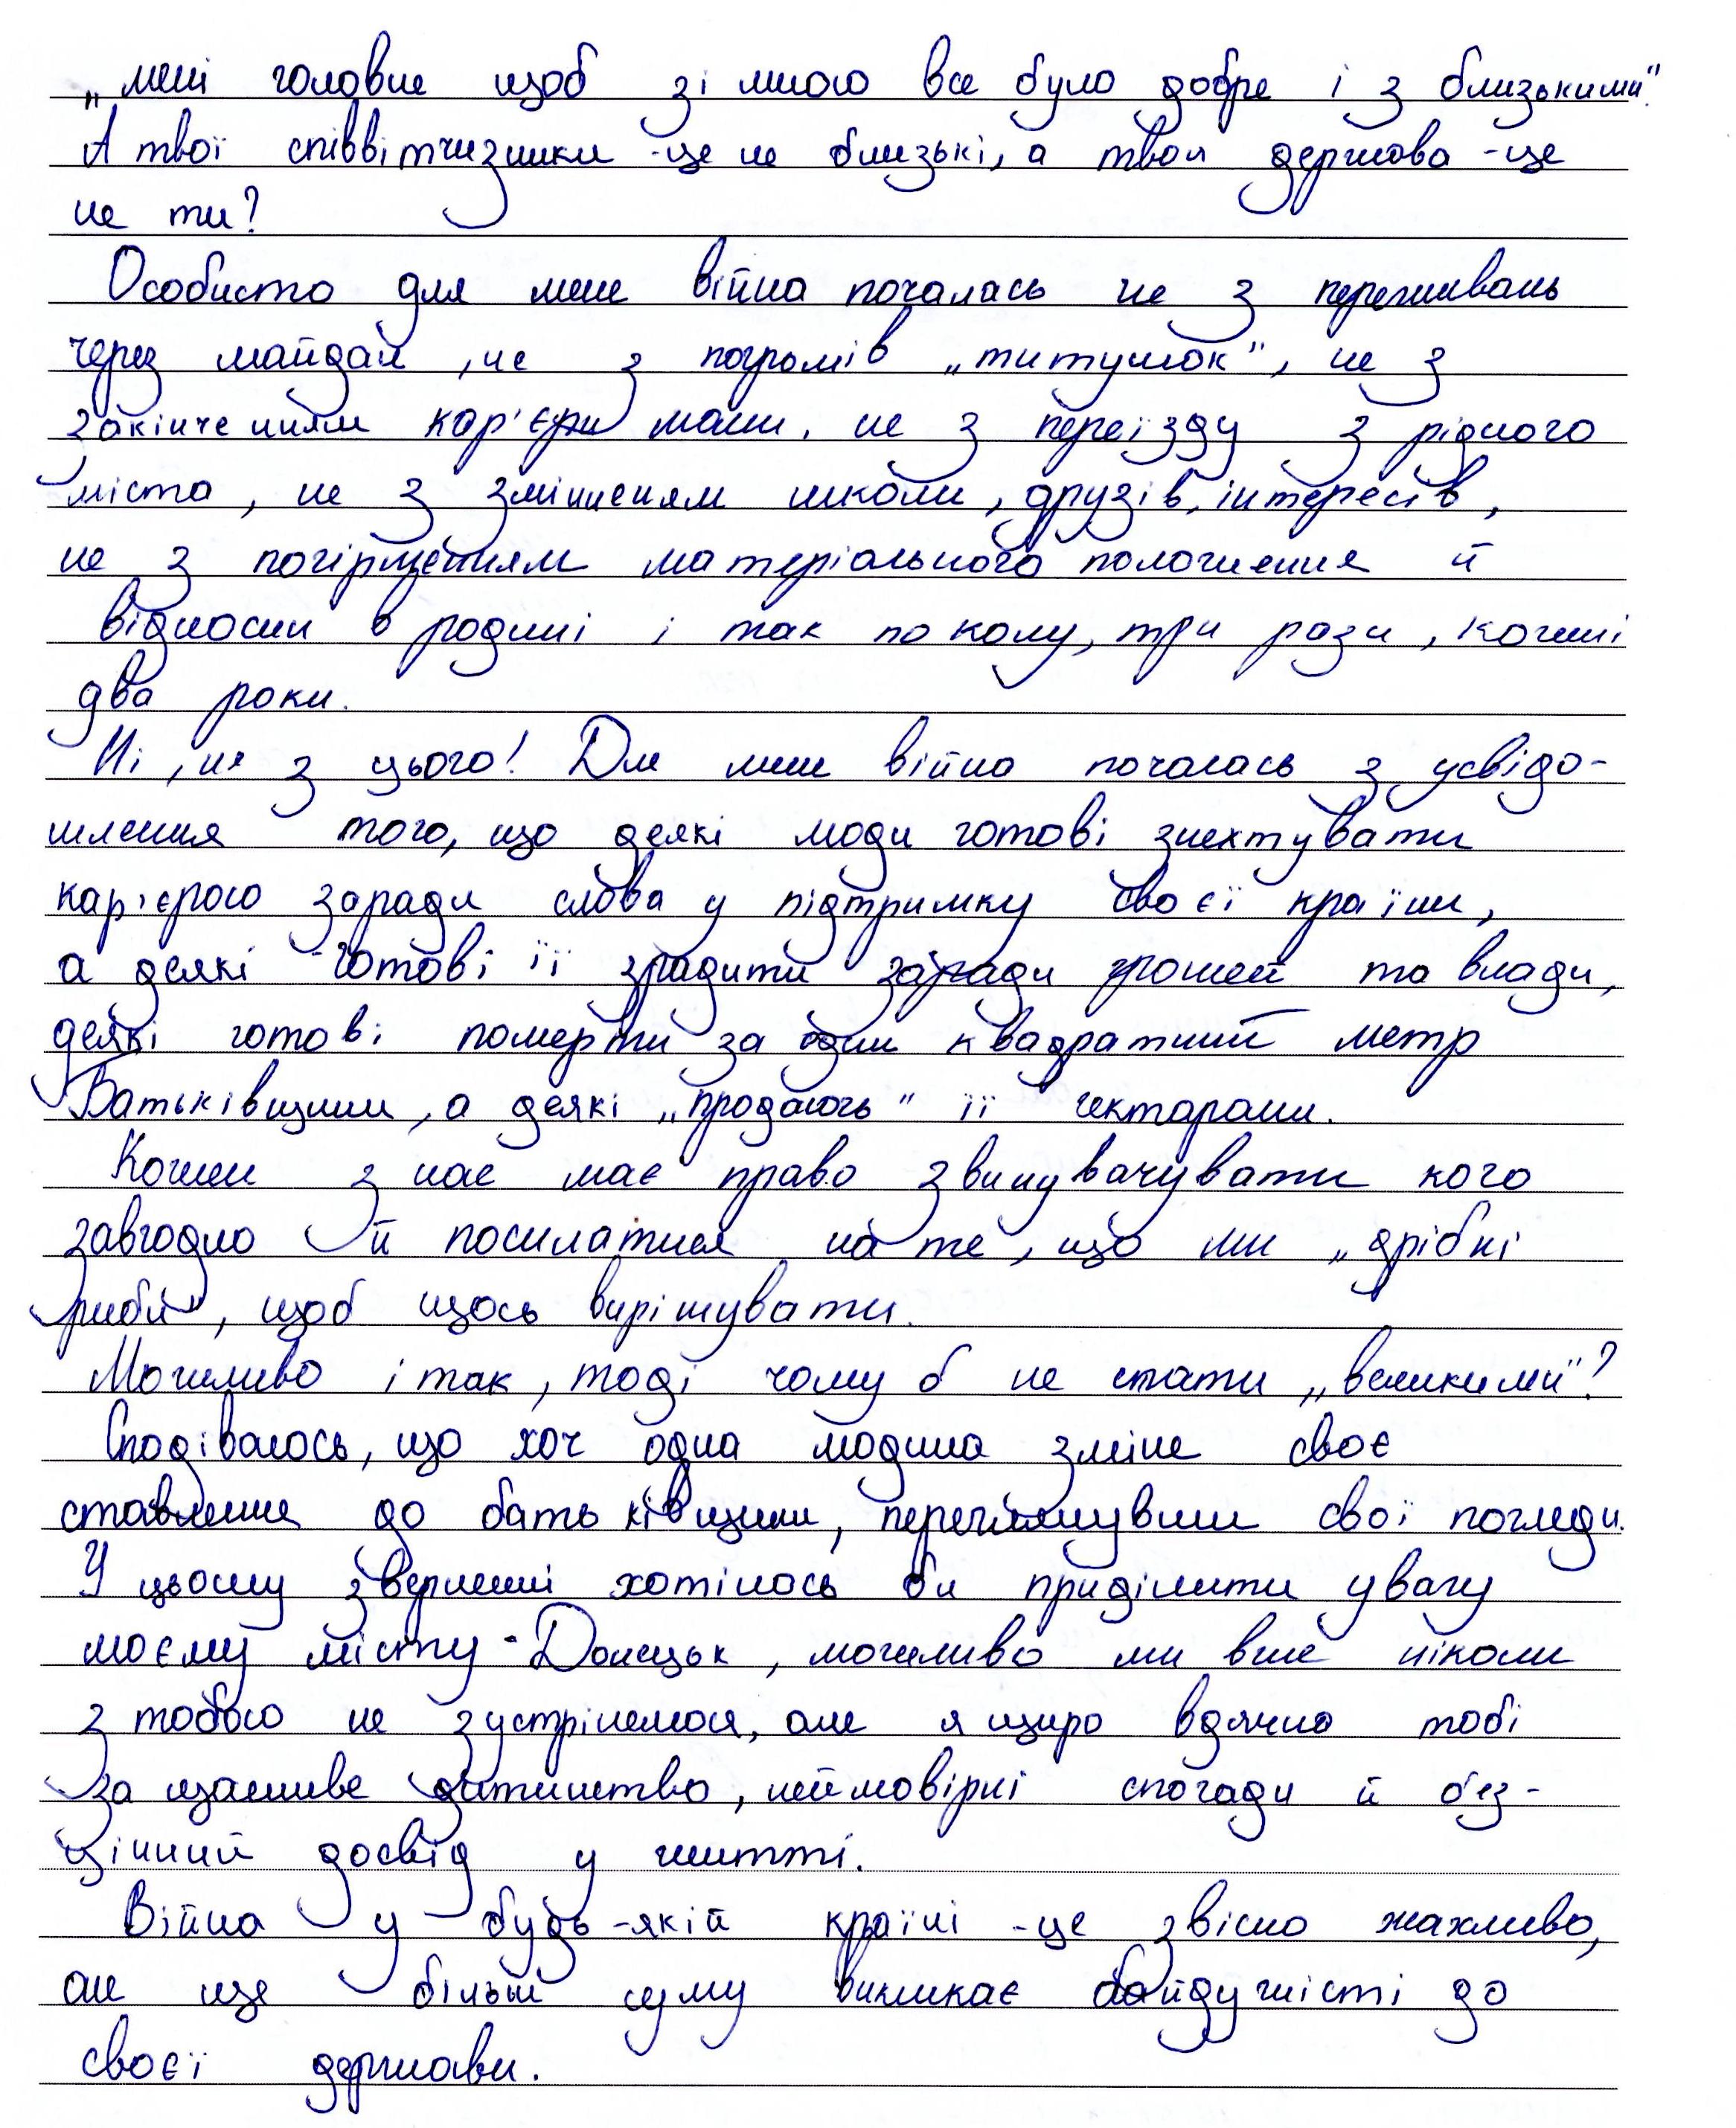 „мені головне щоб зі мною все було добре і з близькими".
А твої співвітчизники -це не близькі, а твоя держава -це
не ти?
Особисто для мене війна почалась не з переживань
через майдан, не з погромів „титушок", не з
закінченням кар'єри мами, не з переїзду з рідного
міста, не з зміненням школи, друзів, інтересів,
не з погіршенням матеріального положення й
відносин в родині і так по колу, три рази, кожні
два роки.
Ні, не з цього! Для мене війна почалась з усвідо-
млення того, що деякі люди готові знехтувати
кар'єрою заради слова у підтримку своєї країни,
а деякі готові її зрадити заради грошей та влади,
деякі готові померти за один квадратний метр
Батьківщини, а деякі „продають" її гектарами.
Кожен з нас має право звинувачувати кого
завгодно й посилатися на те, що ми „дрібні
риби", щоб щось вирішувати.
Можливо і так, тоді чому б не стати „великими"?
Сподіваюсь, що хоч одна людина зміне своє
ставлення до батьківщини, переглянувши свої погляди.
У цьому зверненні хотілось би приділити увагу
моєму місту - Донецьк, можливо ми вже ніколи
з тобою не зустрінемося, але я щиро вдячна тобі
за щасливе дитинство, неймовірні спогади й без-
цінний досвід у житті.
Війна у будь-якій країні -це звісно жахливо,
але ще більш суму викликає байдужісті до
своєї держави.